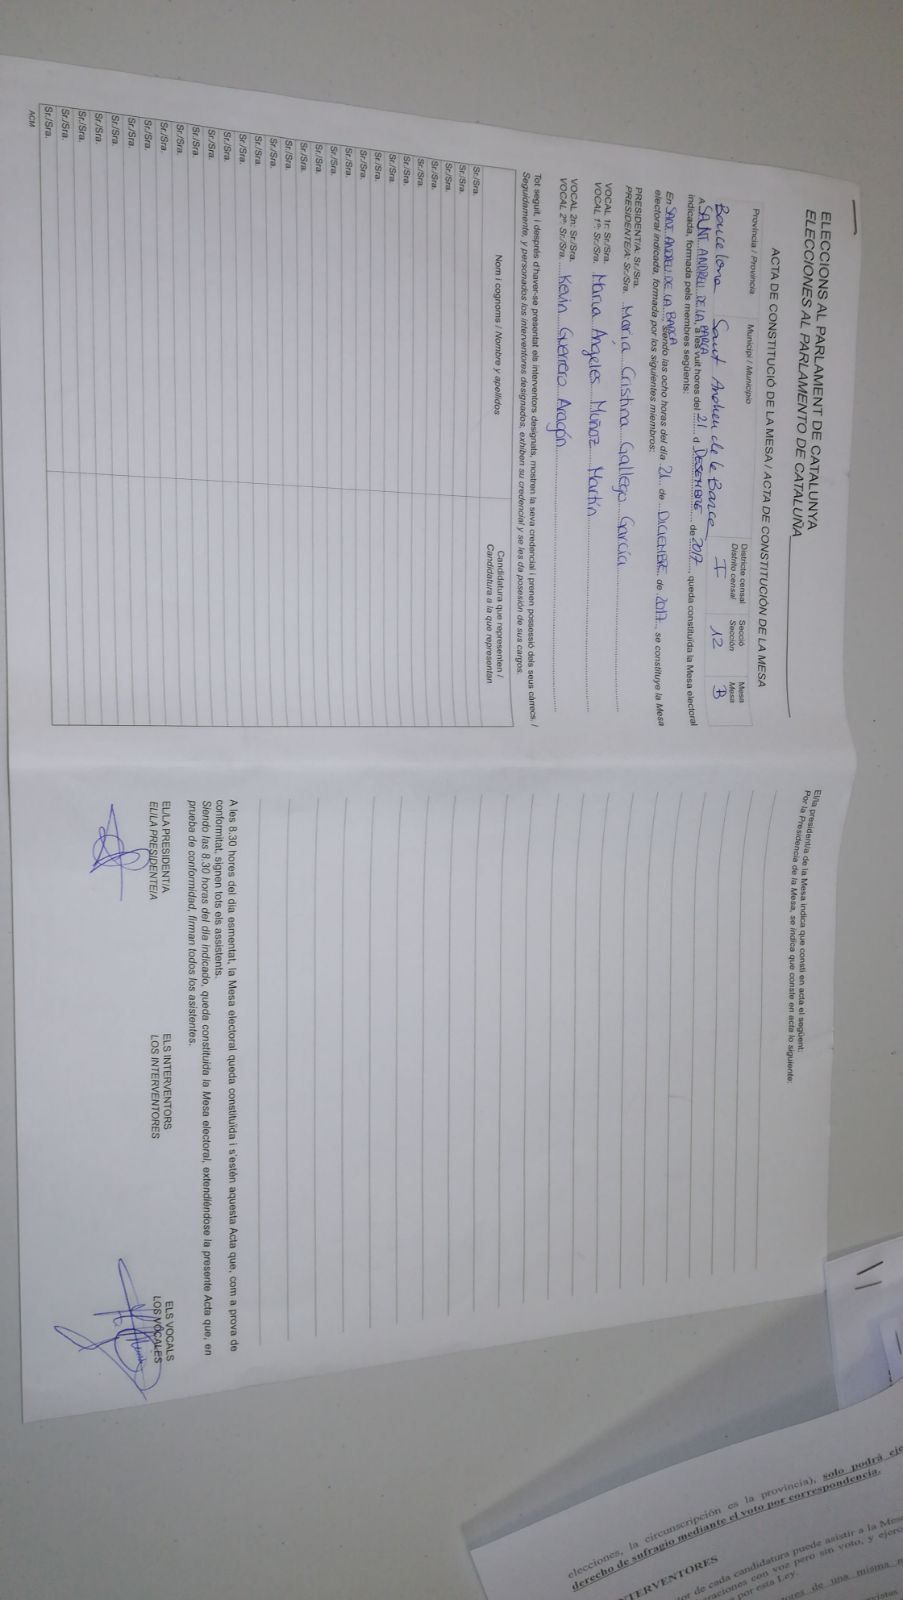 ELECCIONS AL PARLAMENT DE CATALUNYA
ELECCIONES AL PARLAMENTO DE CATALUÑA
ACTA DE CONSTITUCIÓ DE LA MESA / ACTA DE CONSTITUCIÓN DE LA MESA
Província / Provincia Municipi / Municipio Districte censal Secció Mesa
Distrito censal Sección Mesa
Barcelona Sant Andreu de la Barca I 12 B
A SANT ANDREU DE LA BARCA, a les vuit hores del 21 d DESEMBRE de 2017, queda constituïda la Mesa electoral
indicada, formada pels membres següents:
En SANT ANDREU DE LA BARCA siendo las ocho horas del día 21 de DICIEMBRE de 2017, se constituye la Mesa
electoral indicada, formada por los siguientes miembros:
PRESIDENT/A: Sr./Sra.
PRESIDENTE/A: Sr./Sra. María Cristina Gallego García
VOCAL 1r: Sr./Sra.
VOCAL 1º: Sr./Sra. María Ángeles Muñoz Martín
VOCAL 2n: Sr./Sra.
VOCAL 2º: Sr./Sra. Kevin Guerrero Aragón
Tot seguit, i després d'haver-se presentat els interventors designats, mostren la seva credencial i prenen possessió dels seus càrrecs. /
Seguidamente, y personados los interventores designados, exhiben su credencial y se les da posesión de sus cargos.
Nom i cognoms / Nombre y apellidos Candidatura que representen /
Candidatura a la que representan
Sr./Sra.
Sr./Sra.
Sr./Sra.
Sr./Sra.
Sr./Sra.
Sr./Sra.
Sr./Sra.
Sr./Sra.
Sr./Sra.
Sr./Sra.
Sr./Sra.
Sr./Sra.
Sr./Sra.
Sr./Sra.
Sr./Sra.
Sr./Sra.
Sr./Sra.
Sr./Sra.
Sr./Sra.
Sr./Sra.
Sr./Sra.
Sr./Sra.
Sr./Sra.
Sr./Sra.
Sr./Sra.
Sr./Sra.
Sr./Sra.
ACM
El/la president/a de la Mesa indica que consti en acta el següent:
Por la Presidencia de la Mesa, se indica que conste en acta lo siguiente:
A les 8.30 hores del dia esmentat, la Mesa electoral queda constituïda i s'estén aquesta Acta que, com a prova de
conformitat, signen tots els assistents.
Siendo las 8.30 horas del día indicado, queda constituida la Mesa electoral, extendiéndose la presente Acta que, en
prueba de conformidad, firman todos los asistentes.
EL/LA PRESIDENT/A ELS INTERVENTORS ELS VOCALS
EL/LA PRESIDENTE/A LOS INTERVENTORES LOS VOCALES
elecciones, la circunscripción es la provincia), solo podrá
derecho de sufragio mediante el voto por correspondencia.
INTERVENTORES
de cada candidatura puede asistir a la
con voz pero sin voto, y
por esta Ley.
de una misma